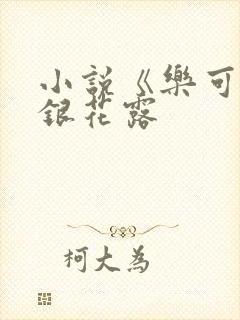 小說《樂可
銀花露
柯大為